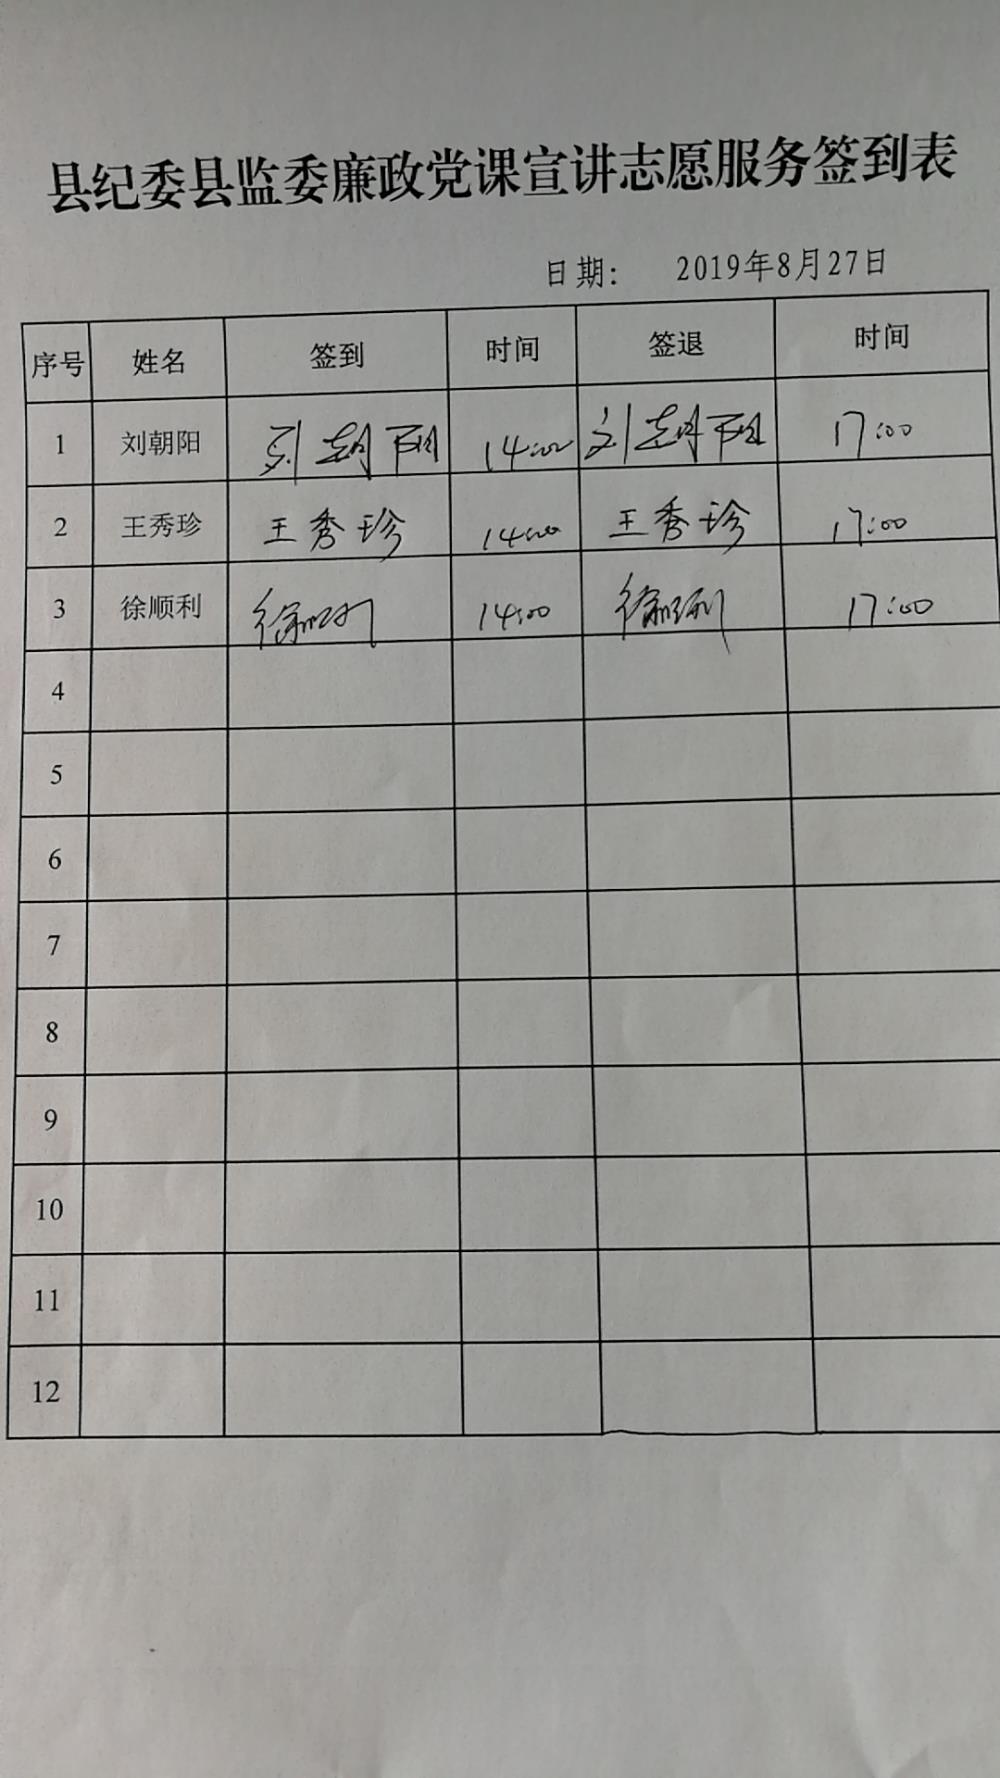 县纪委县监委廉政党课宣讲志愿服务签到表
日期： 2019年8月27日
序号 姓名 签到 时间 签退 时间
1 刘朝阳 刘朝阳 14:00 刘朝阳 17:00
2 王秀珍 王秀珍 14:00 王秀珍 17:00
3 徐顺利 徐顺利 14:00 徐顺利 17:00
4
5
6
7
8
9
10
11
12